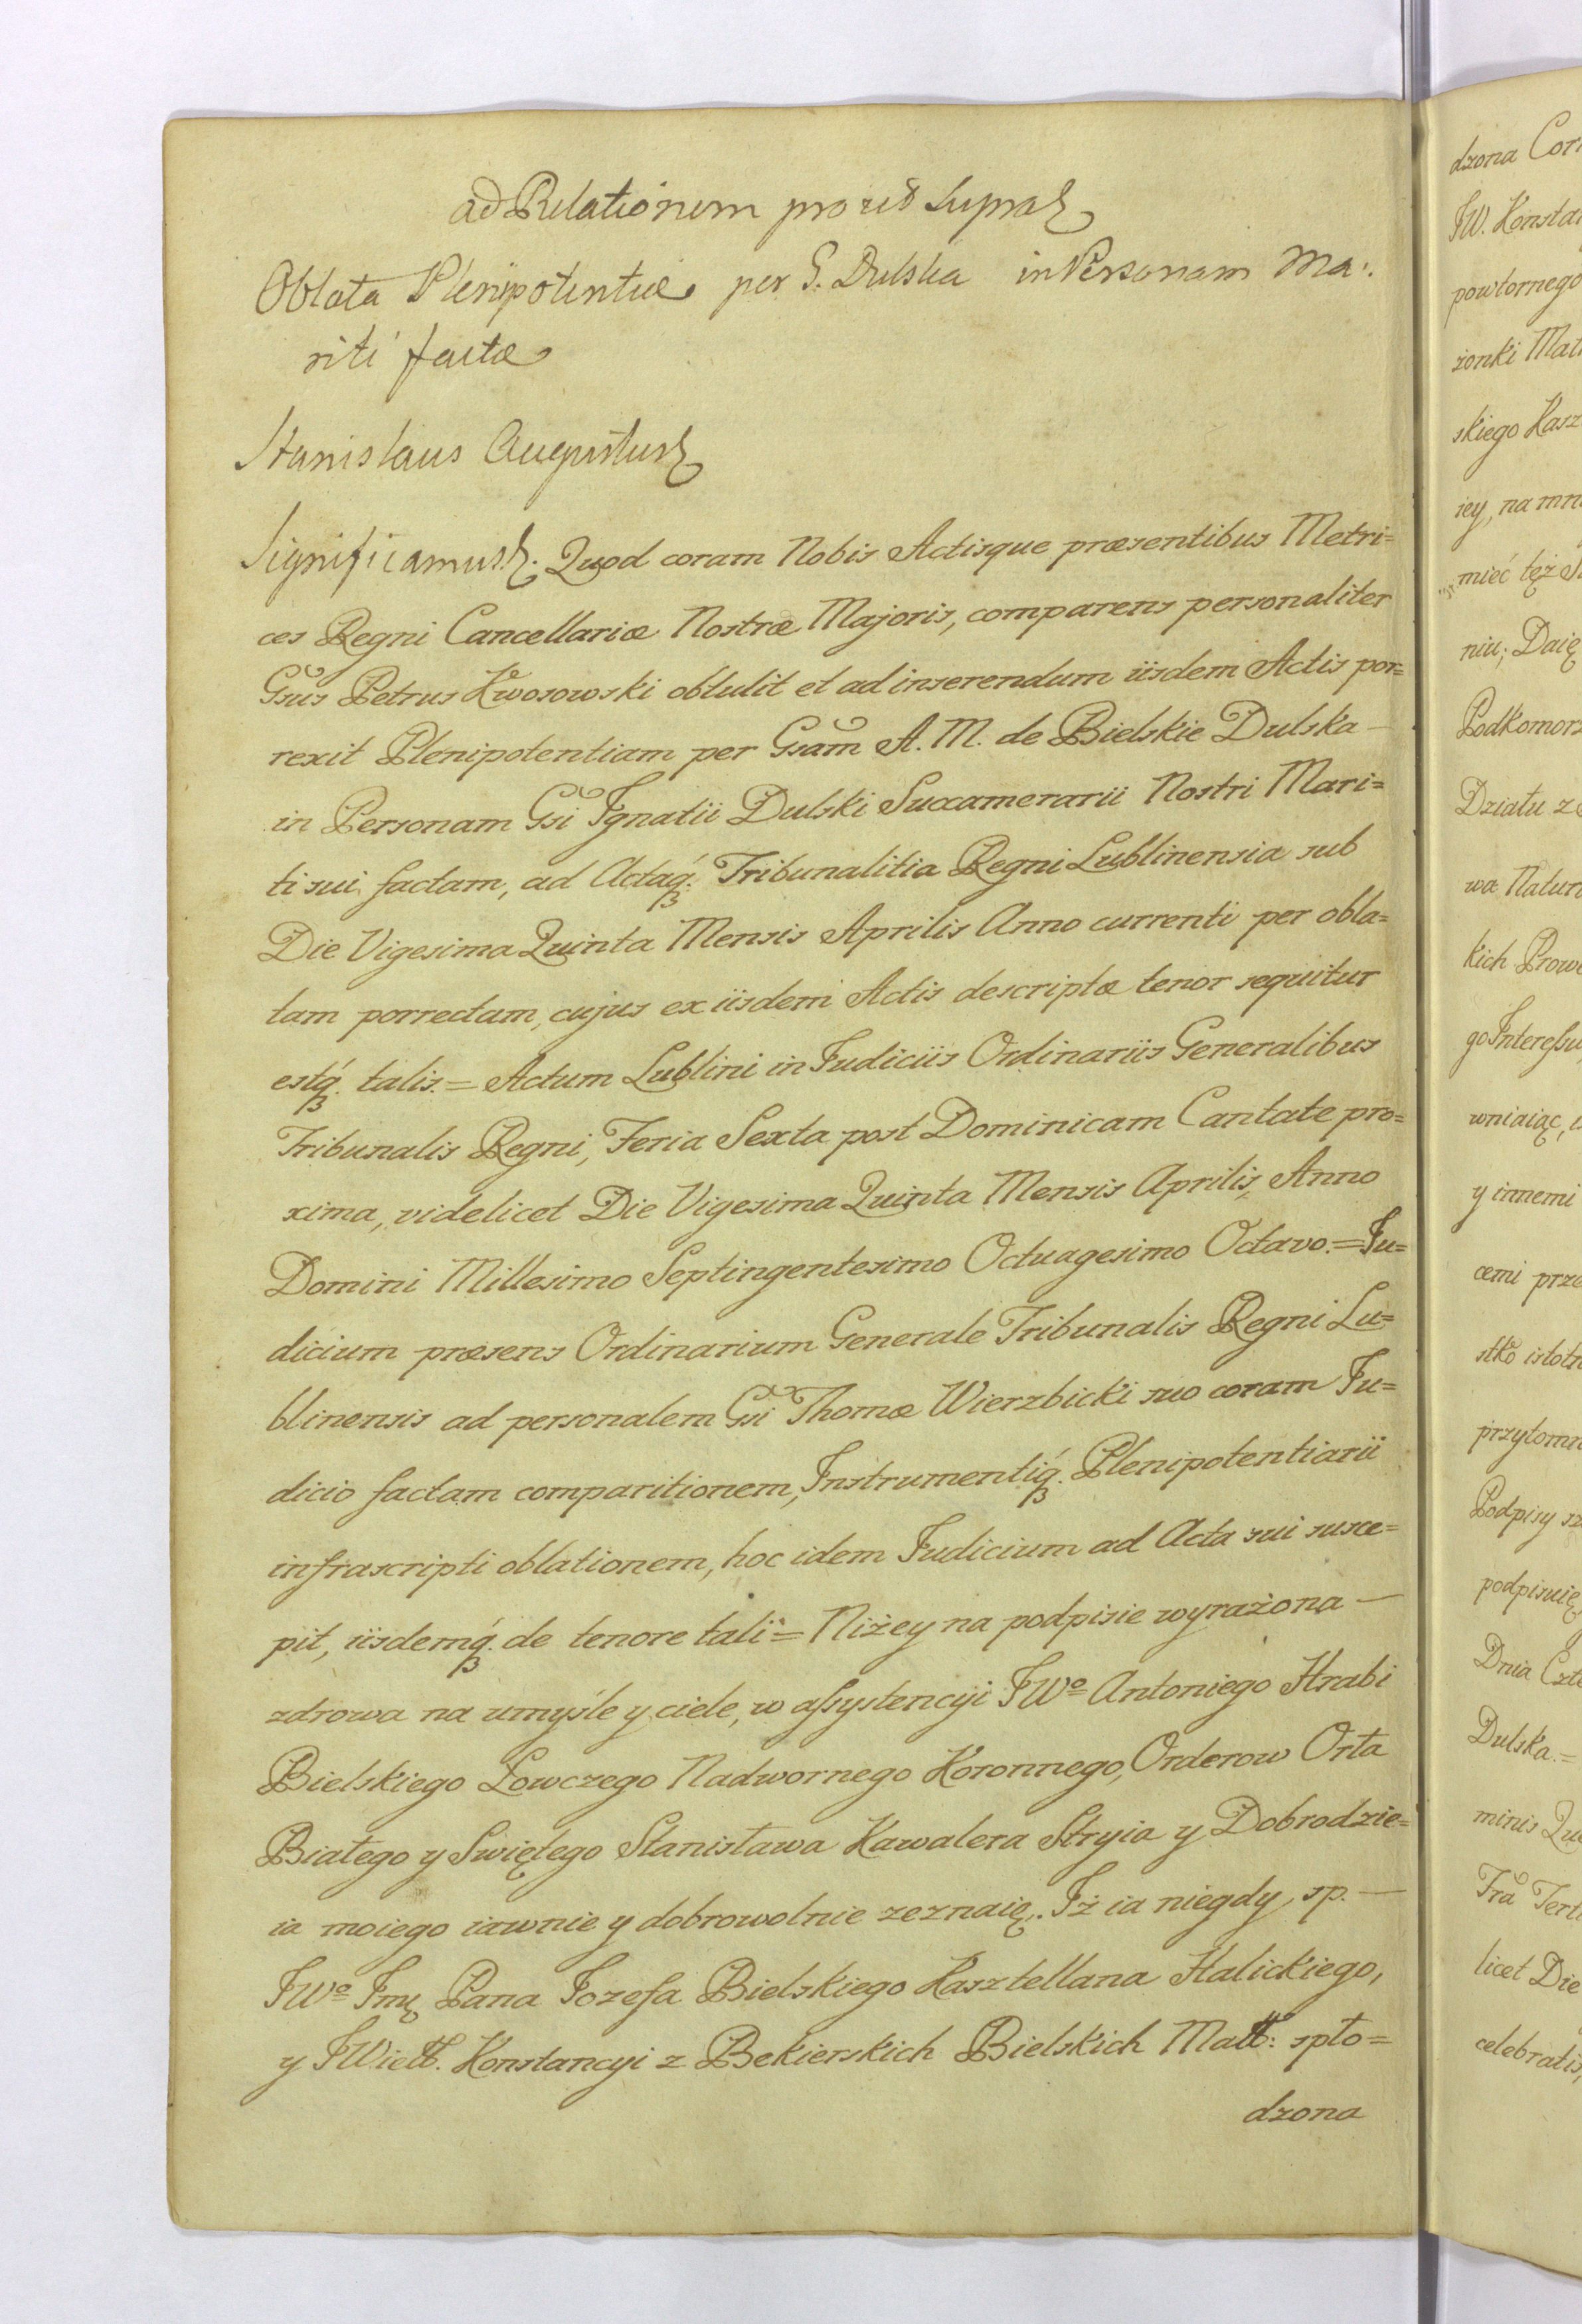 ad Relationem pro ut supra
Oblata Plenipotentiæ per G. Dulska in Personam Ma:
riti factæ
Stanislaus Augustus
Significamus. Quod coram Nobis Actisque præsentibus Metri=
ces Regni Cancellariæ Nostræ Majoris, comparens personaliter
Gsus Petrus Kwosowski obtulit et ad inserendum iisdem Actis por=
rexit Plenipotentiam per Gsam A. M. de Bielskie Dulska —
in Personam Gsi Ignatii Dulski Succamerarii Nostri Mari=
ti sui factam, ad Actaq́. Tribunalitia Regni Lublinensia sub
Die Vigesima Quinta Mensis Aprilis Anno currenti per obla=
tam porrectam, cujus ex iisdem Actis descriptæ tenor sequitur
estq́. talis. = Actum Lublini in Iudiciis Ordinariis Generalibus
Tribunalis Regni, Feria Sexta post Dominicam Cantate pro=
xima, videlicet Die Vigesima Quinta Mensis Aprilis, Anno
Domini Millesimo Septingentesimo Octuagesimo Octavo. = Iu=
dicium præsens Ordinarium Generale Tribunalis Regni Lu=
blinensis ad personalem Gsi Thomæ Wierzbicki suo coram Iu=
dicio factam comparitionem, Instrumentiq́. Plenipotentiarii
infrascripti oblationem, hoc idem Iudicium ad Acta sui susce=
pit, iisdemq́. de tenore tali = Niżey na podpisie wyrażona —
zdrowa na umyśle y ciele, w assystencyi JWo Antoniego Hrabi
Bielskiego Łowczego Nadwornego Koronnego, Orderow Orła
Białego y Swiętego Stanisława Kawalera Stryia y Dobrodzie=
ia moiego iawnie y dobrowolnie zeznaię. Iż ia niegdy sp. —
JWo Jmę Pana Iozefa Bielskiego Kasztellana Halickiego,
y JWiełł. Konstancyi z Bekierskich Bielskich Małł: spło=
dzona
dzona
JW. Konsta
powtornego
żonki
skiego Kasz
iey, na
mieć też
niu; Daię
Podkomor
Działu z
wa Natur
kich
go Interessu
wniaiąc,
y innemi
cemi prze
stko istotn
przytomn
Podpisy
podpisuię
Dnia
Dulska. =
minis
Fra
licet Die
celebratis,